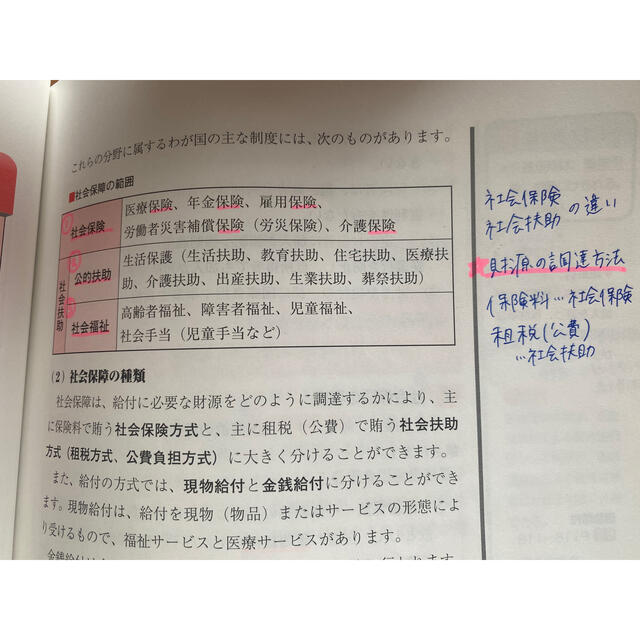 これらの分野に属するわが国の主な制度には、次のものがあります。
■社会保障の範囲
社会保険
医療保険、年金保険、雇用保険、
労働者災害補償保険(労災保険)、介護保険
社会扶助
公的扶助
生活保護(生活扶助、教育扶助、住宅扶助、医療扶
助、介護扶助、出産扶助、生業扶助、葬祭扶助)
社会福祉
高齢者福祉、障害者福祉、児童福祉、
社会手当(児童手当など)
(2)社会保障の種類
社会保障は、給付に必要な財源をどのように調達するかにより、主
に保険料で賄う社会保険方式と、主に租税(公費)で賄う社会扶助
方式(租税方式、公費負担方式)に大きく分けることができます。
また、給付の方式では、現物給付と金銭給付に分けることができ
ます。現物給付は、給付を現物(物品)またはサービスの形態によ
り受けるもので、福祉サービスと医療サービスがあります。
社会保険
社会扶助 の違い
★財源の調達方法
保険料…社会保険
租税(公費)
…社会扶助